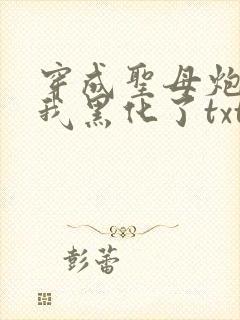 穿成聖母炮
我黑化了txt
彭蕾